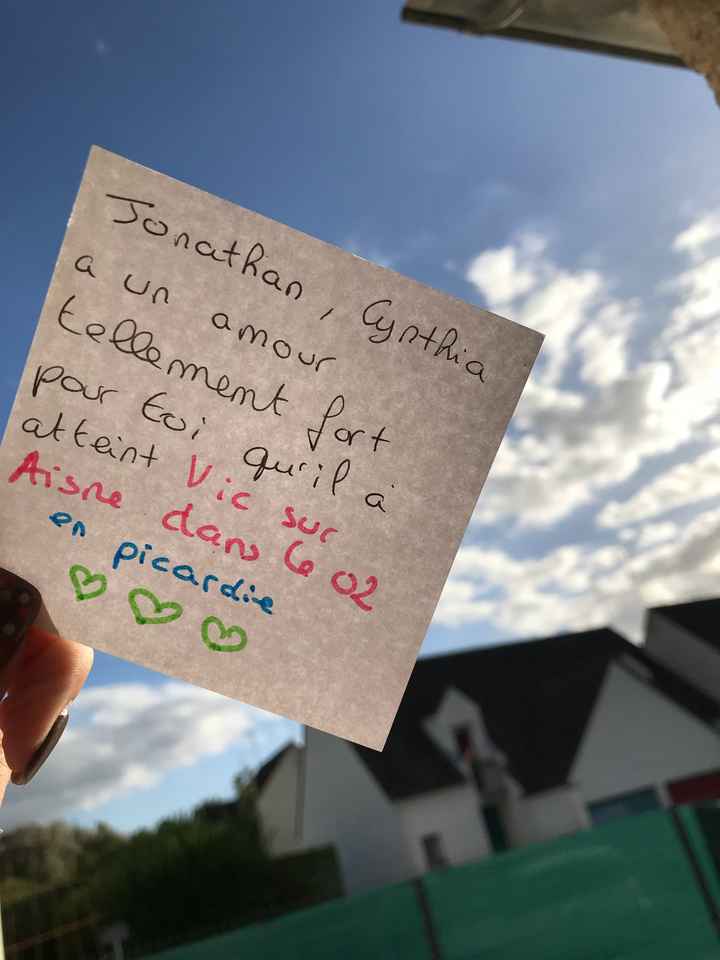 Jonathan, Cynthia
a un amour
tellement fort
pour toi qu'il a
atteint Vic sur
Aisne dans le 02
en picardie